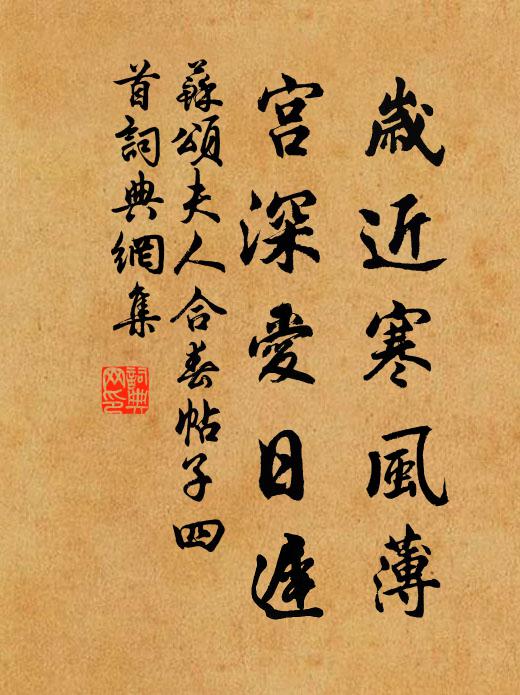 歲近寒風薄
宮深愛日遲
蘇頌夫人合春帖子四
首詞典網集
詞典
网印